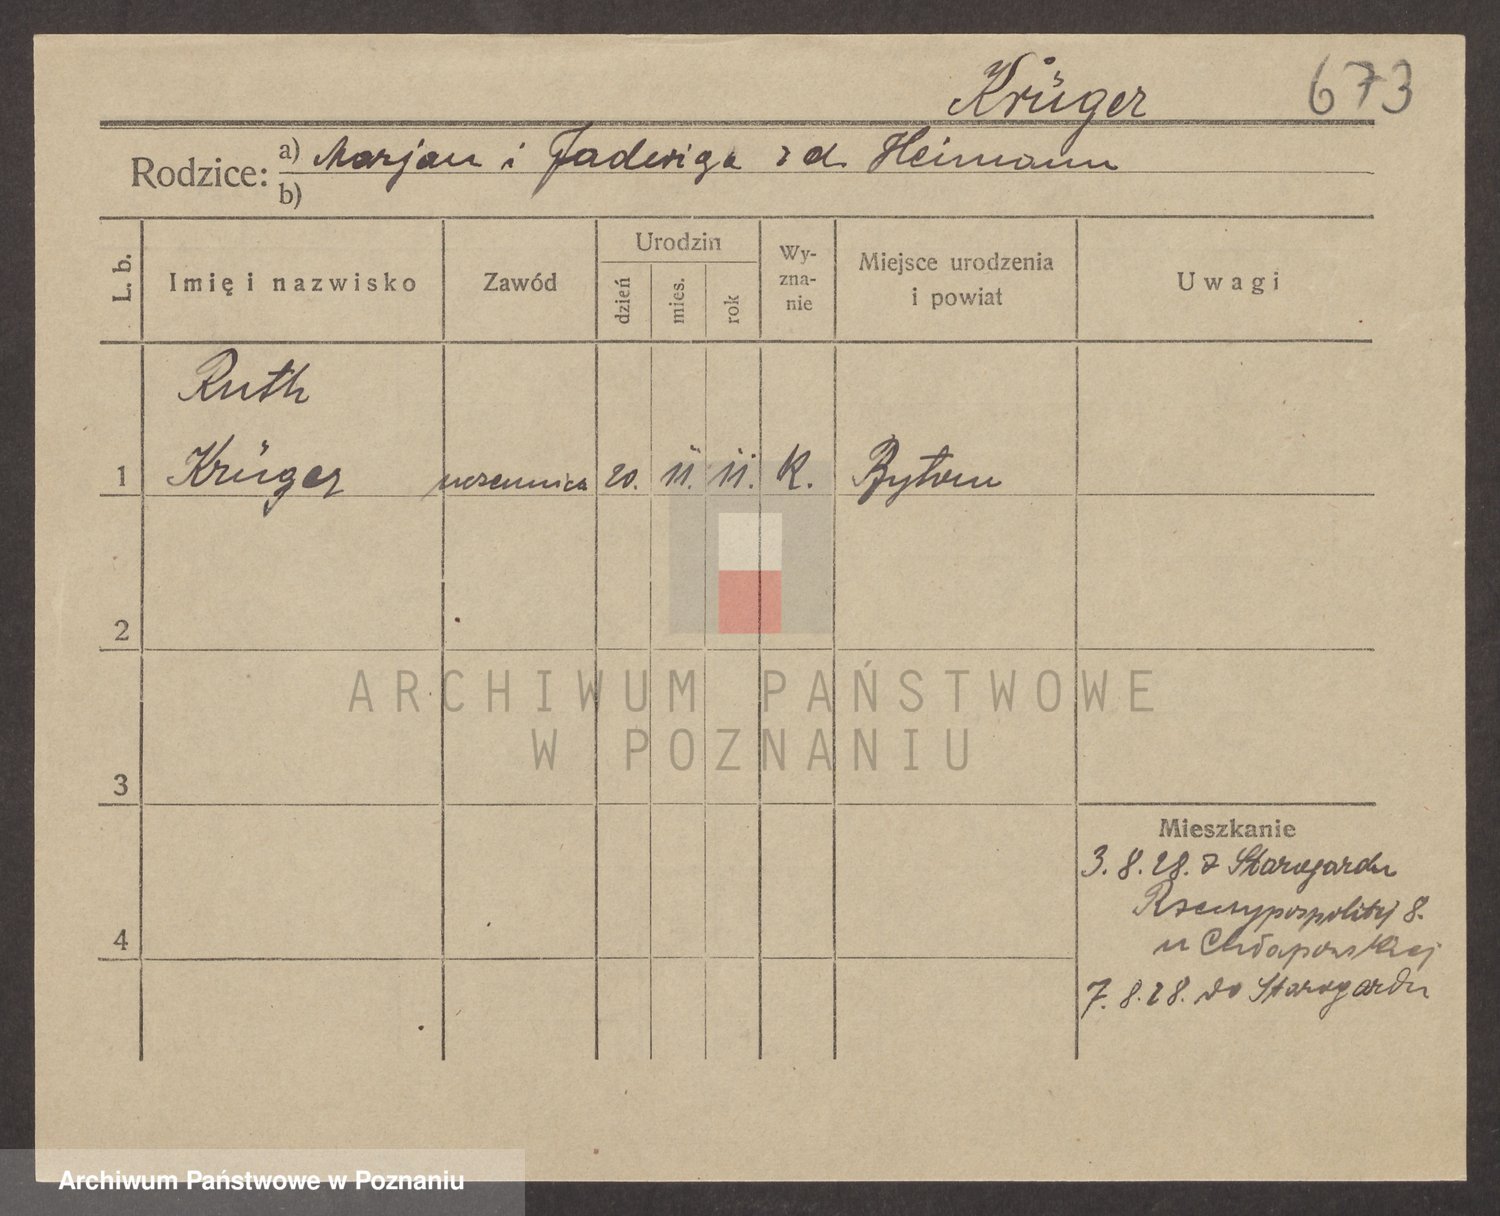 Krüger 673
Rodzice: a) Marjan i Jadwiga z d. Heimann
b)
L. b. Imię i nazwisko Zawód Urodzin dzień mies. rok Wy-zna-nie Miejsce urodzenia i powiat Uwagi
Ruth
1 Krüger uczennica 20. 11. 11. k. Bytom
2
ARCHIWUM PAŃSTWOWE
W POZNANIU
3
Mieszkanie
3. 8. 28. z Starogardu
Rzeczypospolitej 8.
u Chłapowskiej
4
7. 8. 28. do Starogardu
Archiwum Państwowe w Poznaniu